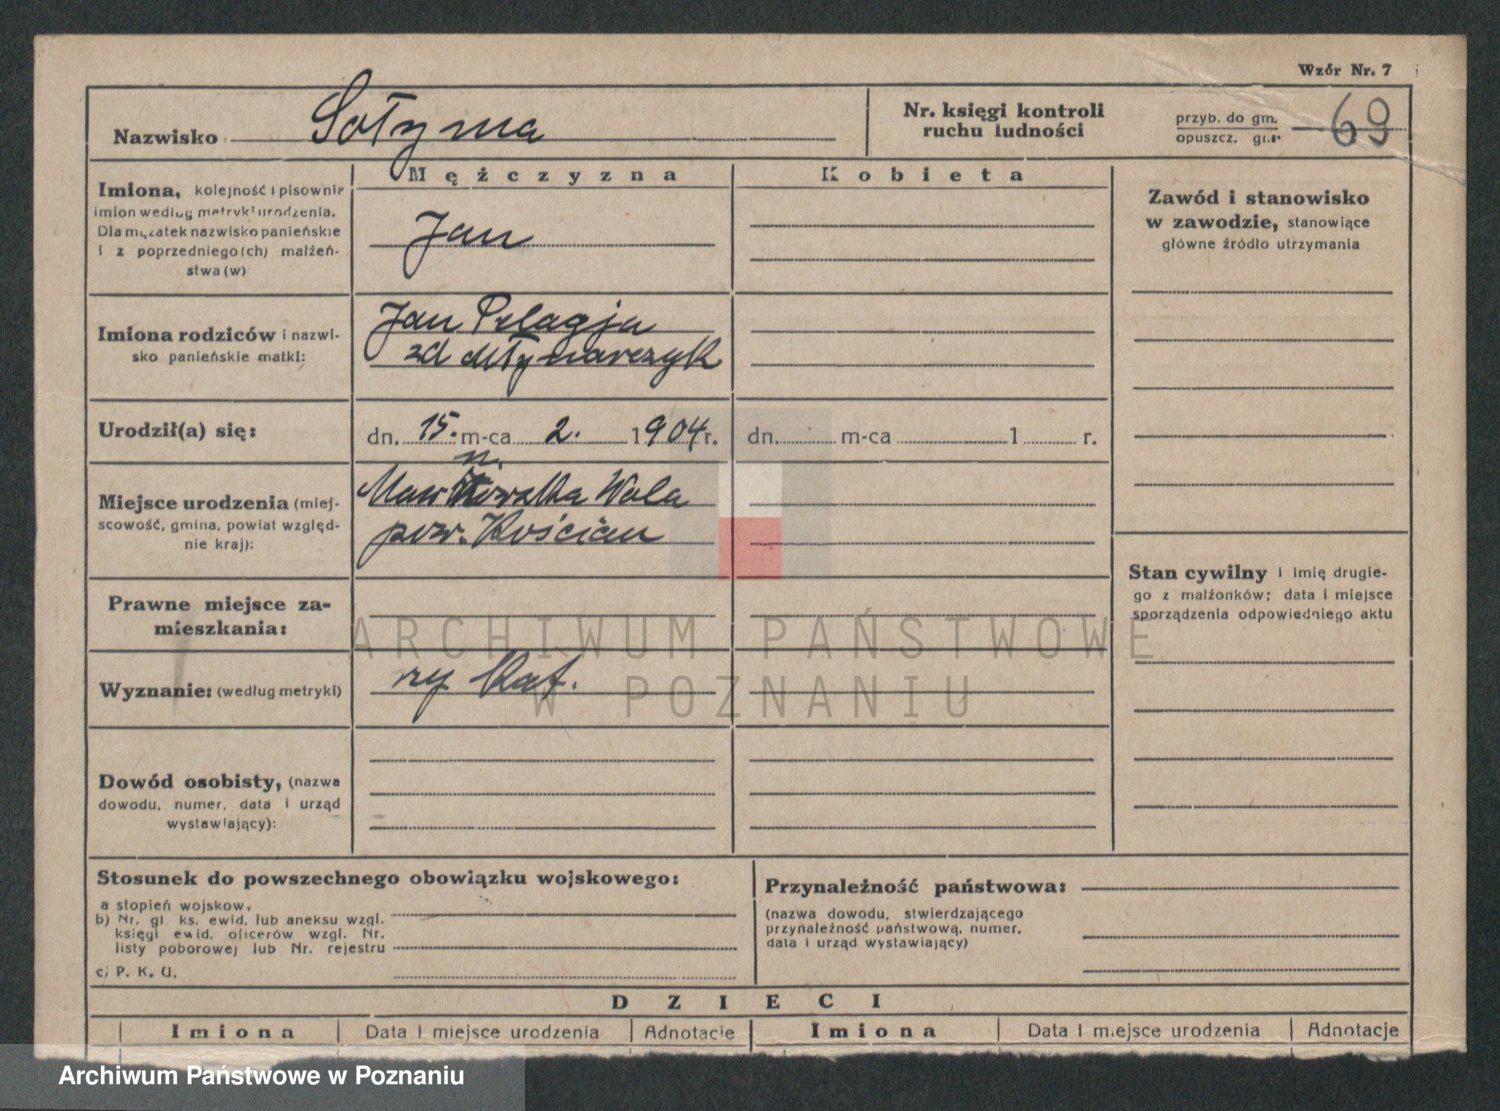 Wzór Nr. 7
Nazwisko Sołyma
Nr. księgi kontroli
ruchu ludności
przyb. do gm.
opuszcz. gm.
69
Mężczyzna
Kobieta
Imiona, kolejność i pisownia
imion według metryki urodzenia.
Dla mężatek nazwisko panieńskie
i z poprzedniego(ch) małżeń-
stwa(w)
Jan
Zawód i stanowisko
w zawodzie, stanowiące
główne źródło utrzymania
Imiona rodziców i nazwi-
sko panieńskie matki:
Jan Pelagja
zd Młynarczyk
Urodził(a) się:
dn. 15. m-ca 2. 1904 r.
dn. m-ca 1 r.
Miejsce urodzenia (miej-
scowość, gmina, powiat względ-
nie kraj):
Wola
pow. Kościan
Stan cywilny i imię drugie-
go z małżonków; data i miejsce
sporządzenia odpowiedniego aktu
Prawne miejsce za-
mieszkania:
ARCHIWUM PAŃSTWOWE
W POZNANIU
Wyznanie: (według metryki)
rz kat.
Dowód osobisty, (nazwa
dowodu, numer, data i urząd
wystawiający):
Stosunek do powszechnego obowiązku wojskowego:
a stopień wojskow.
b) Nr. gl. ks. ewid. lub aneksu wzgl.
księgi ewid. oficerów wzgl. Nr.
listy poborowej lub Nr. rejestru
c) P. K. U.
Przynależność państwowa:
(nazwa dowodu, stwierdzającego
przynależność państwową, numer,
data i urząd wystawiający)
DZIECI
Imiona
Data i miejsce urodzenia
Adnotacje
Imiona
Data i miejsce urodzenia
Adnotacje
Archiwum Państwowe w Poznaniu